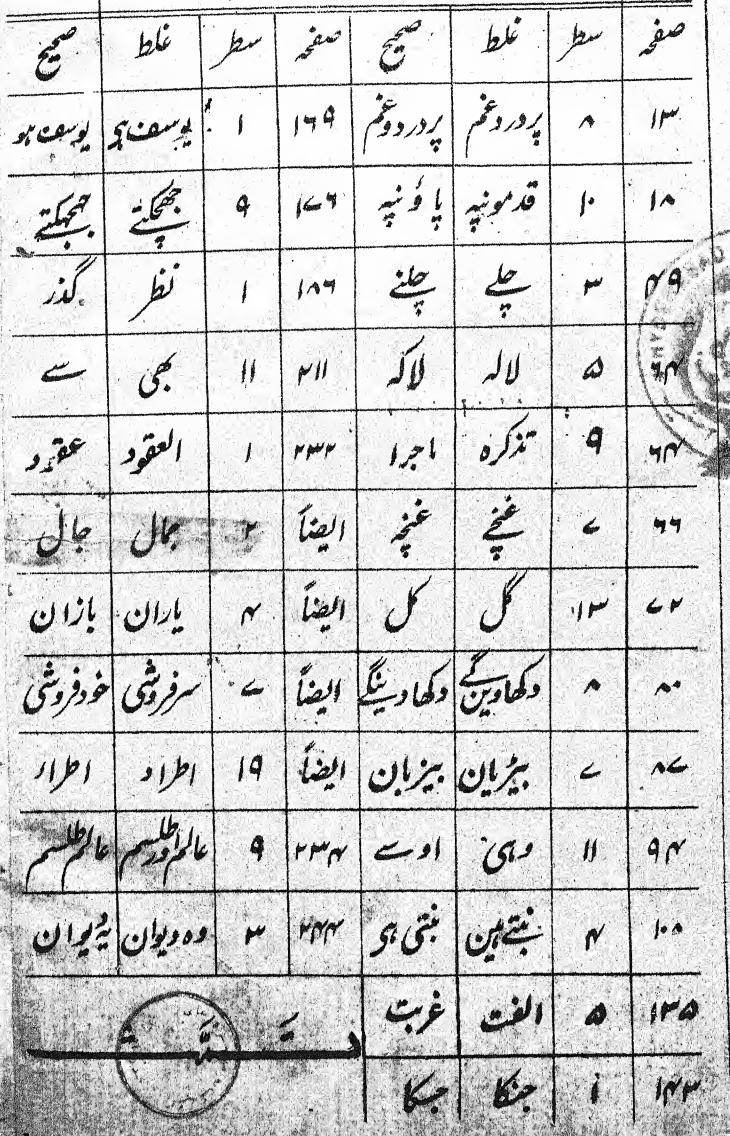 صفحہ سطر غلط صحیح صفحہ سطر غلط صحیح
۱۳ ۸ پردردغم پردردوغم ۱۶۹ ۱ یوسف ہی یوسف ہو
۱۸ ۱۰ قدمونپہ پاؤنپہ ۱۷۶ ۹ جھچکتے جھجھکتے
۴۹ ۳ چلے چلنے ۱۸۶ ۱ نظر گذر
۶۴ ۵ لالہ لاکہ ۲۱۱ ۱۱ بھی سے
۶۴ ۹ تذکرہ ماجرا ۲۳۲ ۱ العقود عقود
۶۶ ۷ غنچے غنچہ ایضاً ۲ جمال جال
۷۲ ۱۳ گل کل ایضاً ۴ یاران بازان
۸۰ ۸ دکھاوین گے دکھادینگے ایضاً ۷ سرفروشی خودفروشی
۸۷ ۷ بیڑیان بیزبان ایضاً ۱۹ اطراد اطراء
۹۴ ۱۱ وہی اوسے ۲۳۴ ۹ عالم اور طلسم عالم طلسم
۱۰۸ ۴ بنتے ہین بنتی ہی ۲۴۴ ۳ وہ دیوان یہ دیوان
۱۳۵ ۵ الفت غربت
۱۴۳ ۱ جنکا جسکا